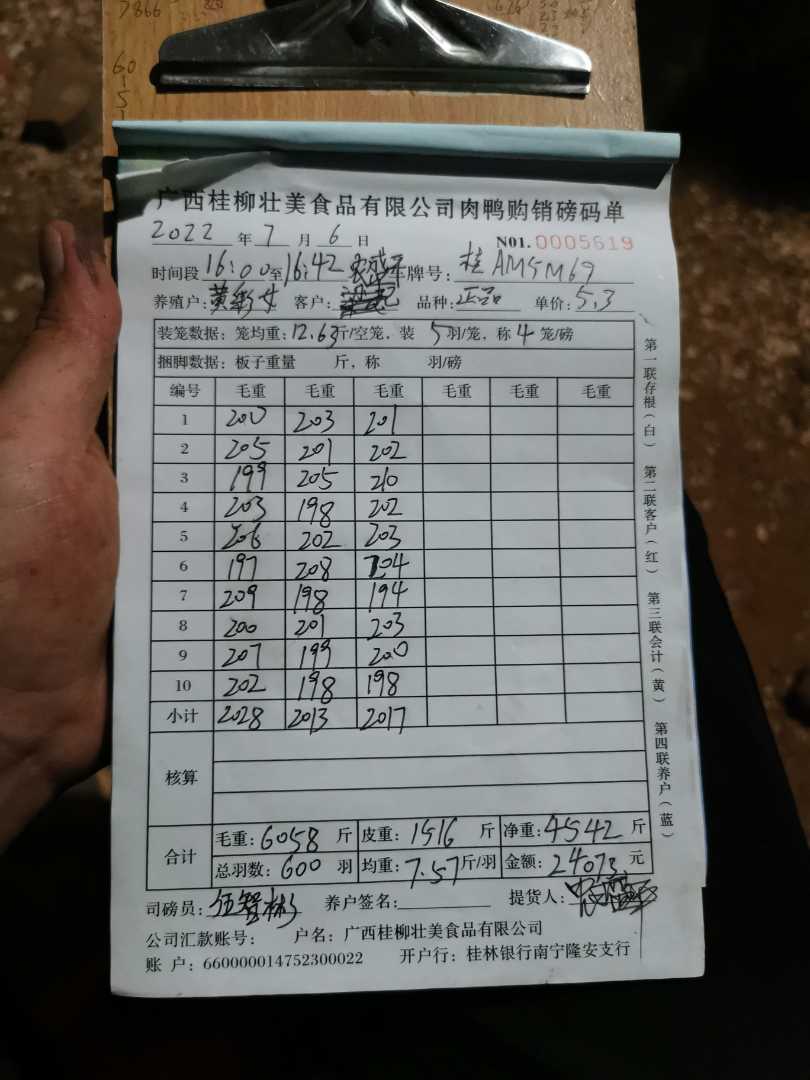 7866
60
5
广西桂柳壮美食品有限公司肉鸭购销磅码单
2022 年 7 月 6 日 N01.0005619
时间段 16:00至16:42 车牌号: 桂AM5M69
养殖户: 黄彩女 客户: 品种: 正品 单价: 5.3
装笼数据: 笼均重: 12.63斤/空笼, 装 5羽/笼, 称 4 笼/磅
捆脚数据: 板子重量 斤, 称 羽/磅
编号 毛重 毛重 毛重 毛重 毛重 毛重
1 200 203 201
2 205 201 202
3 199 205 210
4 203 198 202
5 206 202 203
6 197 208 204
7 209 198 194
8 200 201 203
9 207 199 200
10 202 198 198
小计 2028 2013 2017
核算
合计
毛重: 6058 斤 皮重: 1516 斤 净重: 4542 斤
总羽数: 600 羽 均重: 7.57斤/羽 金额: 24073 元
司磅员: 伍智彬 养户签名: 提货人:
公司汇款账号: 户名: 广西桂柳壮美食品有限公司
账 户: 660000014752300022 开户行: 桂林银行南宁隆安支行
第一联存根(白)
第二联客户(红)
第三联会计(黄)
第四联养户(蓝)